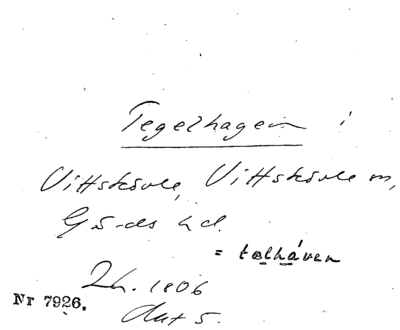 Tegelhagen i
Vittskövle, Vittskövle sn,
Gärds hd.
= tælháven
Lh. 1806
Akt 5.
Nr 7926.